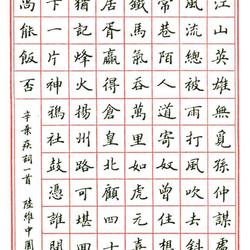 江山英雄無覓孫仲謀處
風流總被雨打風吹去斜
常巷陌人道寄奴曾住想
鐵馬氣吞萬里如虎元嘉
居胥贏得倉皇北顧四十
猶記烽火揚州路可堪回
一片神鴉社鼓憑誰問
尚能飯否
辛棄疾詞一首 陸維中